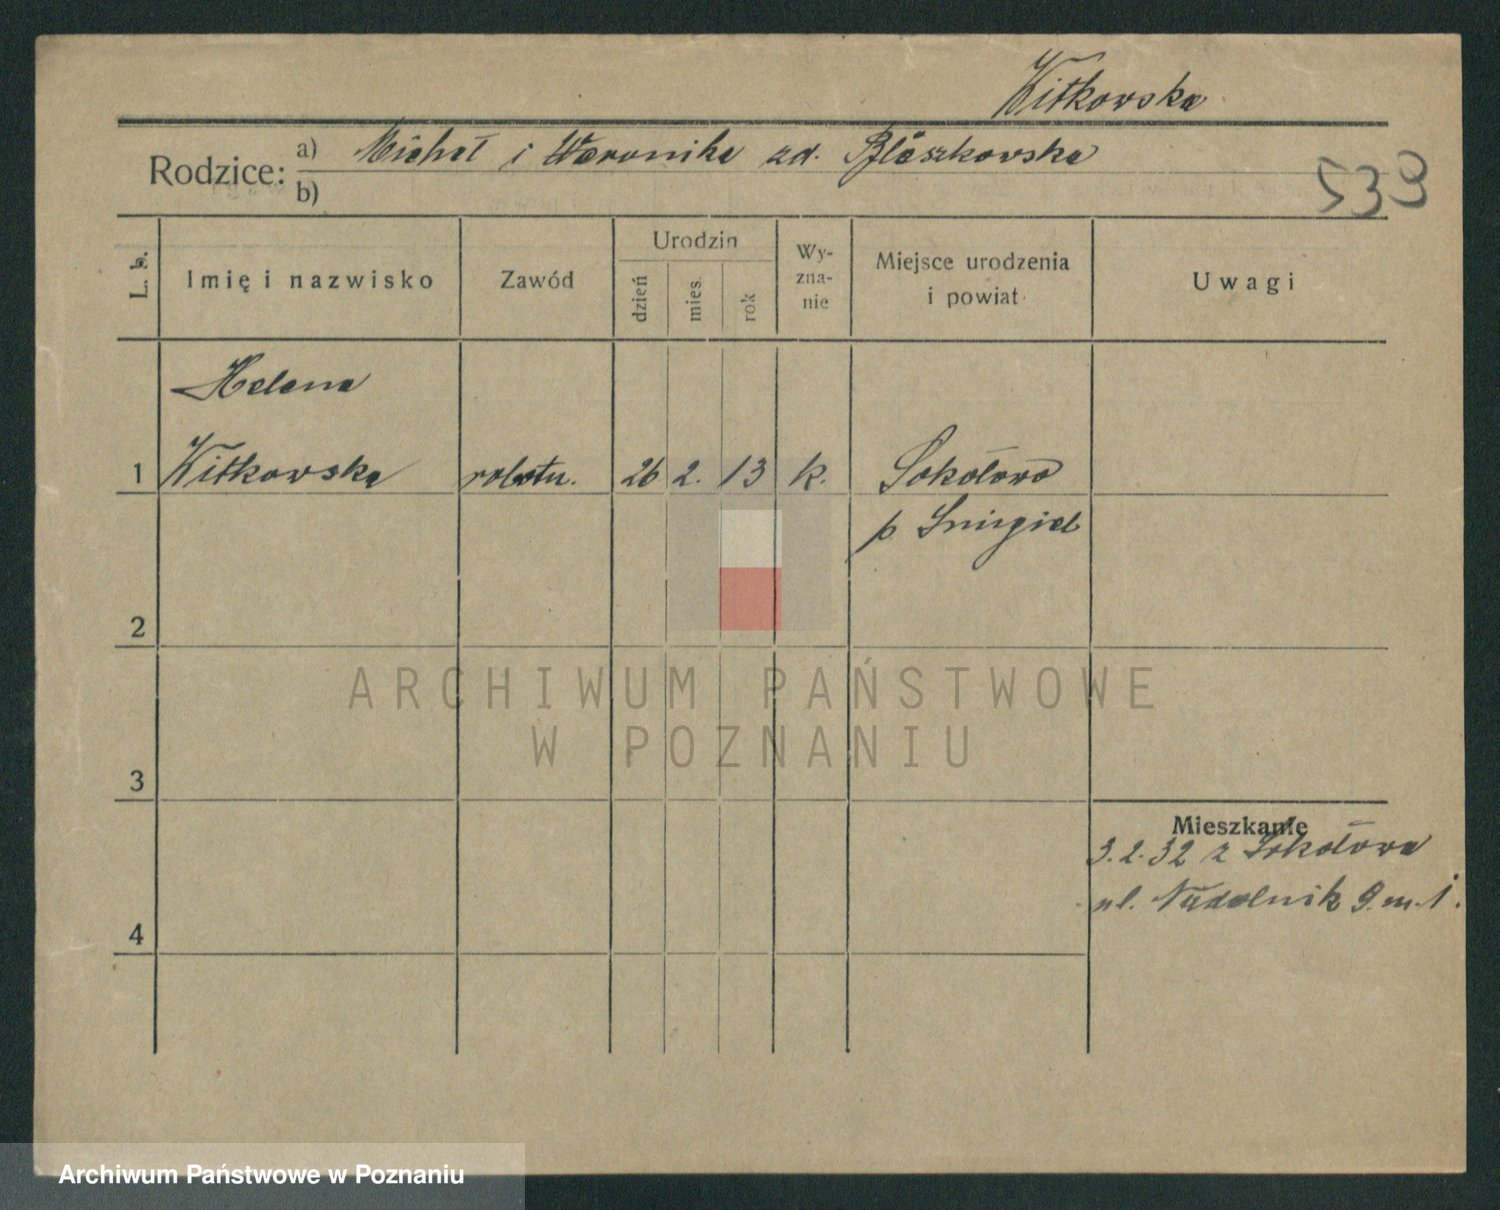 Witkowska
Rodzice: a) Michał i Weronika zd. Błaszkowska
b)
539
L. b.
Imię i nazwisko
Zawód
Urodzin
dzień
mies.
rok
Wy-
zna-
nie
Miejsce urodzenia
i powiat
Uwagi
Helena
1 Witkowska robotn. 26 2. 13 k. Sokołowo
p Śmigiel
2
ARCHIWUM PAŃSTWOWE
W POZNANIU
3
Mieszkanie
3.2.32 z Sokołowa
ul. 9. m. 1.
4
Archiwum Państwowe w Poznaniu